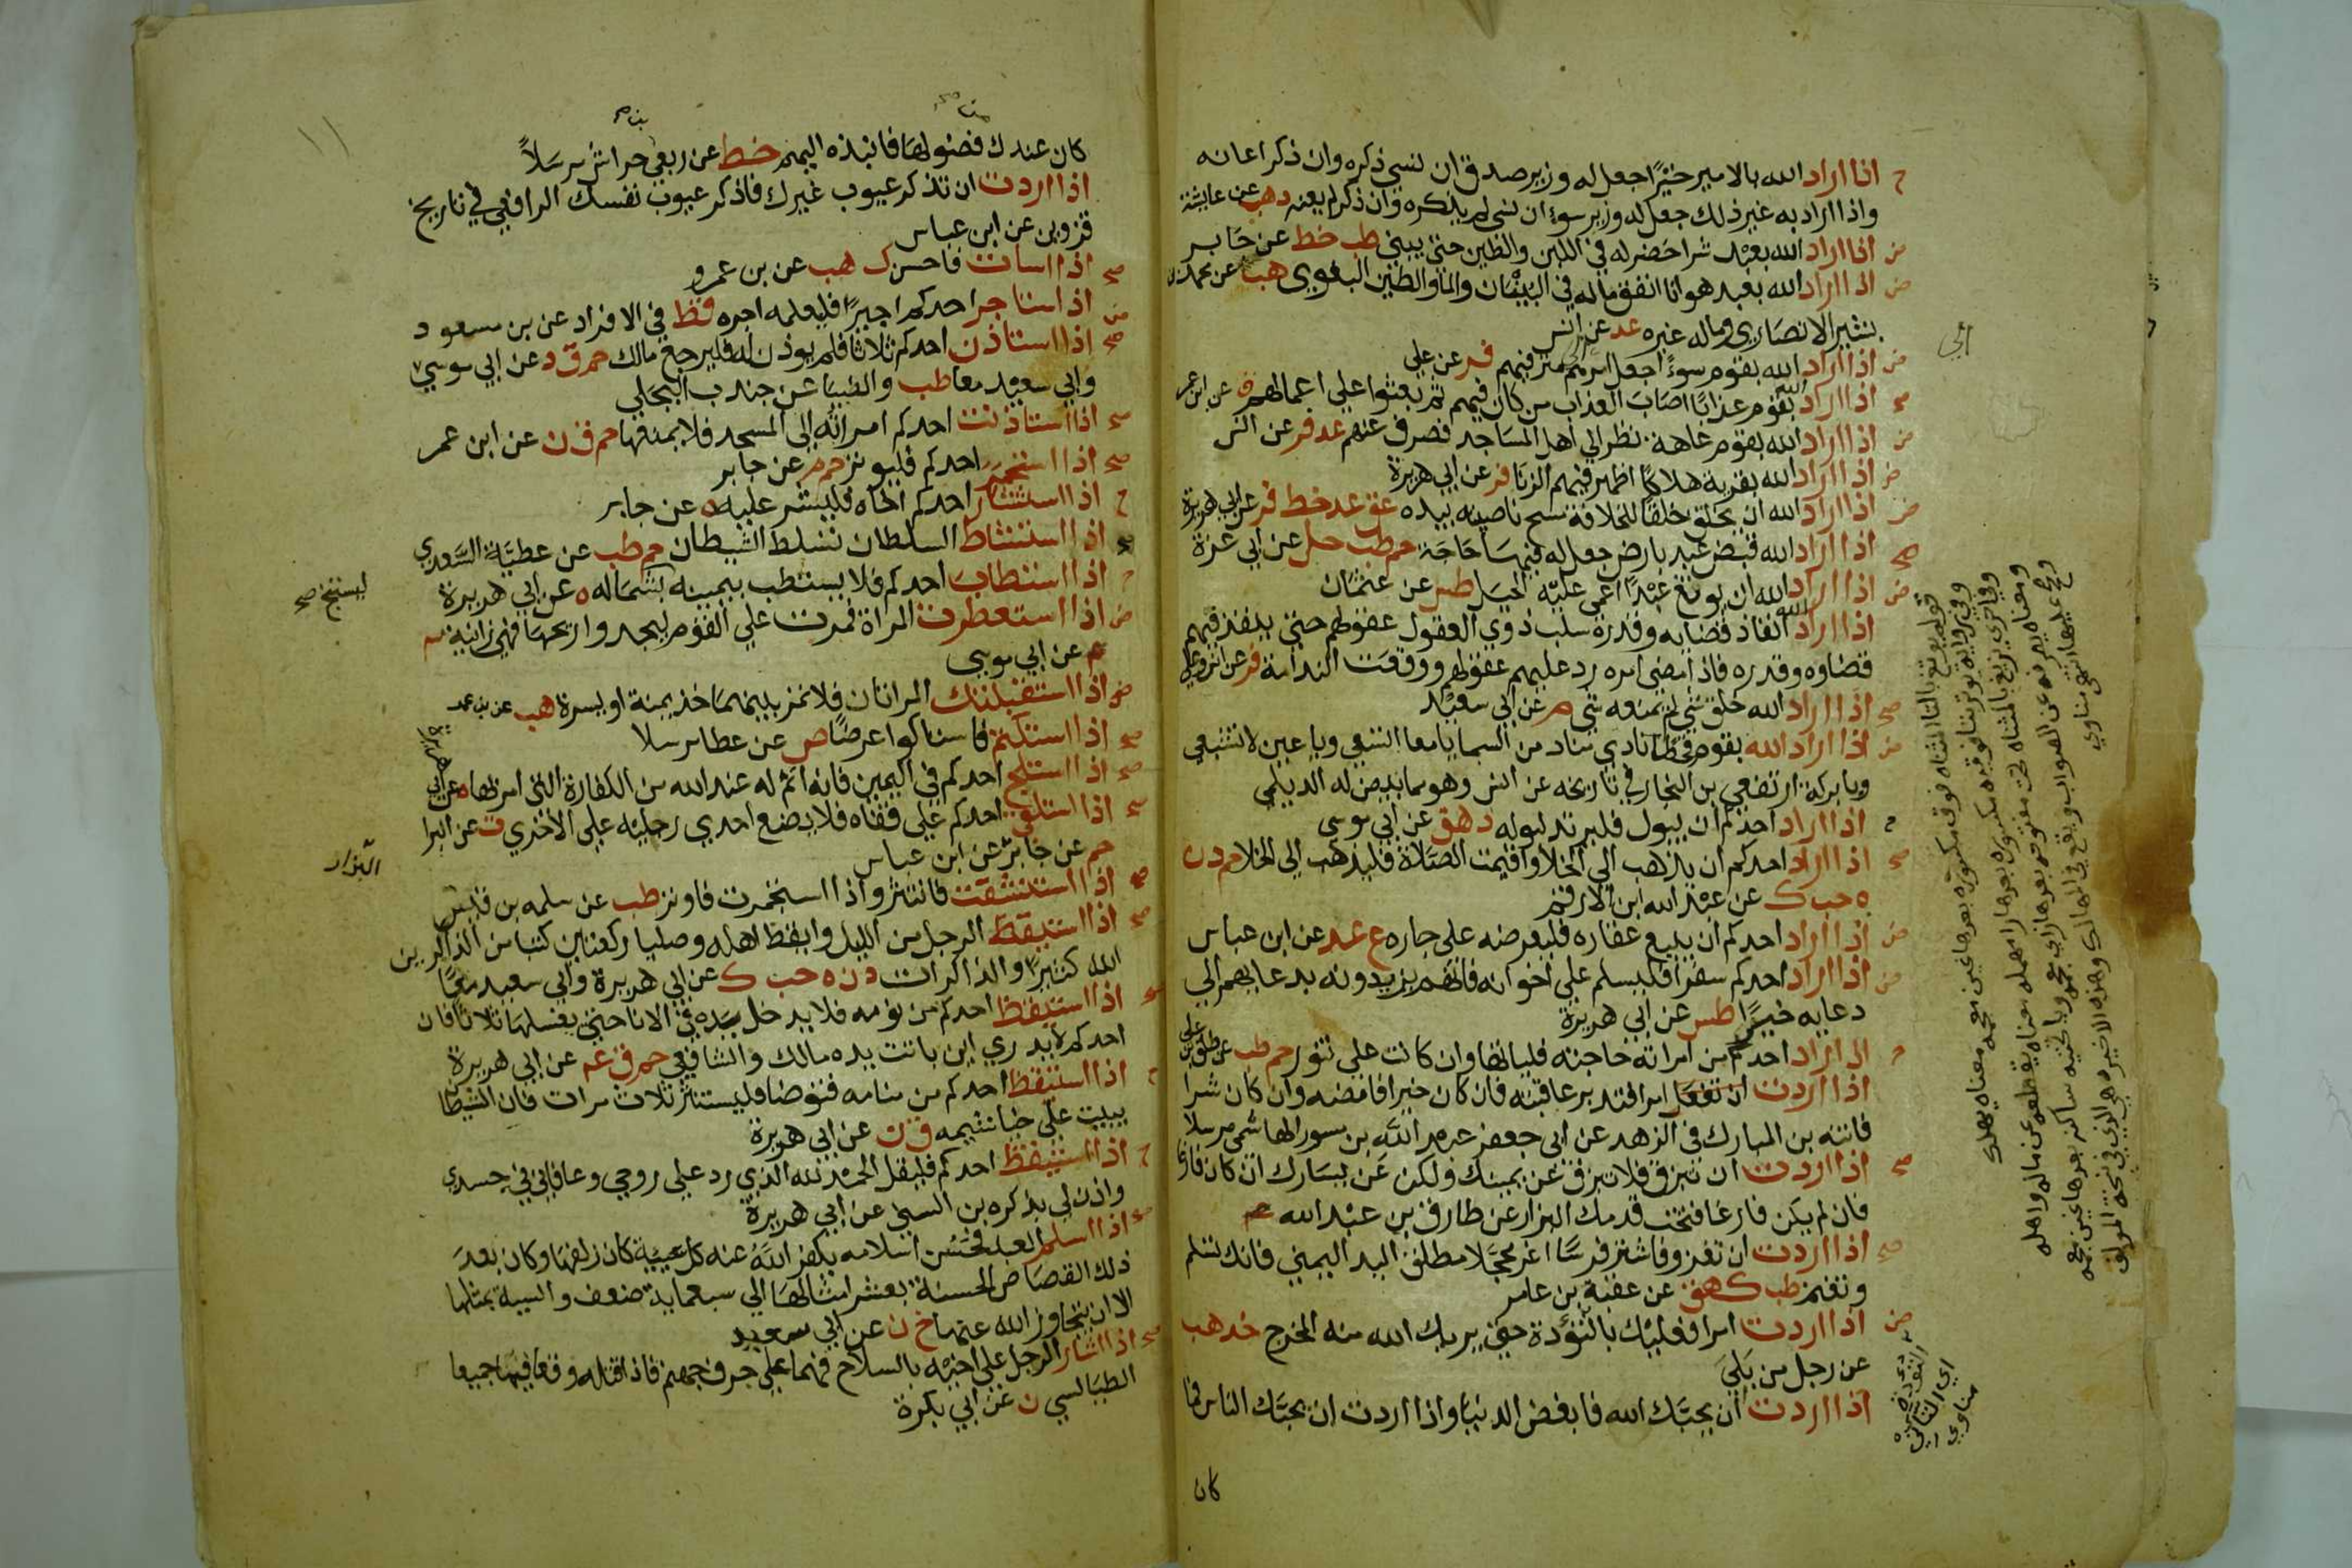 ح اذا اراد الله بالامير خيرًا جعل له وزير صدق ان نسي ذكره وان ذكر اعانه
واذا اراد به غير ذلك جعل له وزير سوء ان نسي لم يذكره وان ذكر لم يعنه د هب عن عايشة
ض اذا اراد الله بعبد شرا خضر له في اللبن والطين حتى يبني طب خط عن جابر
ض اذا اراد الله بعبد هوانا انفق ماله في البنيان والما والطين البغوي هب عن محمد بن
بشير الانصاري وماله غيره عد عن انس
ض اذا اراد الله بقوم سوءً اجعل امرهم الى مترفيهم فر عن علي
صح اذا اراد الله بقوم عذابًا اصاب العذاب من كان فيهم ثم بعثوا على اعمالهم ق عن ابن عمر
ض اذا اراد الله بقوم عاهة نظر الي اهل المساجد فصرف عنهم عد فر عن انس
ض اذا اراد الله بقرية هلاكًا اظهر فيهم الزنا فر عن ابي هريرة
ض اذا اراد الله ان يخلق خلقًا للخلافة مسح ناصيته بيده عق عد خط فر عن ابي هريرة
صح اذا اراد الله قبض عبد بارض جعل له فيها حاجة حم طب حل عن ابي عزة
ض اذا اراد الله ان يوتغ عبدًا اعمى عليه الحيل طس عن عثمان
اذا اراد الله انفاذ قضايه وقدره سلب ذوي العقول عقولهم حتى ينفذ فيهم
قضاوه وقدره فاذا امضى امره رد عليهم عقولهم ووقعت الندامة فر عن انس وعلي
صح اذا اراد الله خلق شي لم يمنعه شي م عن ابي سعيد
ض اذا اراد الله بقوم قحطا نادى مناد من السما يا معا اتسعي ويا عين لا تشبعي
ويا بركة ارتفعي بن النجار في تاريخه عن انس وهو مما بيض له الديلمي
ح اذا اراد احدكم ان يبول فليرتد لبوله د هق عن ابي موسى
صح اذا اراد احدكم ان يذهب الى الخلا واقيمت الصلاة فليذهب الى الخلا حم د ن
ه حب ك عن عبد الله ابن الارقم
ض اذا اراد احدكم ان يبيع عقاره فليعرضه على جاره ع عد عن ابن عباس
ض اذا اراد احدكم سفرا فليسلم على اخوانه فانهم يزيدونه بدعايهم الي
دعايه خيرًا طس عن ابي هريرة
ح اذا اراد احدكم من امراته حاجته فلياتها وان كانت على تنور حم طب عن طلق بن علي
اذا اردت ان تفعل امرا فتدبر عاقبته فان كان خيرا فامضه وان كان شرا
فانته بن المبارك في الزهد عن ابي جعفر عبد الله بن مسور الهاشمي مرسلا
صح اذا اردت ان تبزق فلا تبزق عن يمينك ولكن عن يسارك ان كان فارغا
فان لم يكن فارغا فتحت قدمك البزار عن طارق بن عبد الله
صح اذا اردت ان تغزو فاشتر فرسًا اغر محجلا مطلق اليد اليمنى فانك تسلم
وتغنم طب ك هق عن عقبة بن عامر
ض اذا اردت امرا فعليك بالتؤدة حتى يريك الله منه المخرج خد هب
عن رجل من بلي
اذا اردت ان يحبك الله فابغض الدنيا واذا اردت ان يحبك الناس فما
كان
الي
قوله يوتغ بالتا المثناه فوق مكسوره بعدها غين معجمه معناه يهلك
ومعناه يصرفه عن الصواب
اي التاني
مناوي
كان عندك من فضولها فانبذه اليهم خط عن ربعي بن حراش مرسلاً
اذا اردت ان تذكر عيوب غيرك فاذكر عيوب نفسك الرافعي في تاريخ
قزوين عن ابن عباس
صح اذا اسات فاحسن ك هب عن بن عمرو
ض اذا استاجر احدكم اجيرًا فليعلمه اجره قط في الافراد عن بن مسعود
صح اذا استاذن احدكم ثلاثا فلم يوذن له فليرجع مالك حم ق د عن ابي موسى
وابي سعيد معا طب والضيا عن جندب البجلي
صح اذا استاذنت احدكم امراته الى المسجد فلا يمنعها حم ق ن عن ابن عمر
صح اذا استجمر احدكم فليوتر حم م عن جابر
ح اذا استشار احدكم اخاه فليشر عليه ه عن جابر
صح اذا استشاط السلطان تسلط الشيطان حم طب عن عطية السعدي
ح اذا استطاب احدكم فلا يستطب بيمينه بشماله ه عن ابي هريرة
ليستنج صح
ض اذا استعطرت المراة فمرت على القوم ليجدوا ريحها فهي زانية
عن ابي موسى
ض اذا استقبلتك المراتان فلا تمر بينهما خذ يمنة او يسرة هب عن بن عمر
صح اذا استكتم فاستاكوا عرضًا ص عن عطا مرسلا
صح اذا استلج احدكم في اليمين فانه اثم له عند الله من الكفارة التي امر بها ه عن ابي هريرة
صح اذا استلقى احدكم على قفاه فلا يضع احدى رجليه على الاخرى ت عن البرا
حم عن جابر عن ابن عباس
البزار
صح اذا استنشقت فانتثر واذا استجمرت فاوتر طب عن سلمه بن قيس
صح اذا استيقظ الرجل من الليل وايقظ اهله وصليا ركعتين كتبا من الذاكرين
الله كثيرًا والذاكرات د ن ه حب ك عن ابي هريرة وابي سعيد معًا
صح اذا استيقظ احدكم من نومه فلا يدخل يده في الانا حتى يغسلها ثلاثا فان
احدكم لا يدري اين باتت يده مالك والشافعي حم ق عم عن ابي هريرة
ح اذا استيقظ احدكم من منامه فتوضا فليستنثر ثلاث مرات فان الشيطان
يبيت على خياشيمه ق ن عن ابي هريرة
ح اذا استيقظ احدكم فليقل الحمد لله الذي رد علي روحي وعافاني في جسدي
واذن لي بذكره بن السني عن ابي هريرة
صح اذا اسلم العبد فحسن اسلامه يكفر الله عنه كل سيية كان زلفها وكان بعد
ذلك القصاص الحسنة بعشر امثالها الي سبعماية ضعف والسيية بمثلها
الا ان يتجاوز الله عنها خ ن عن ابي سعيد
صح اذا اشار الرجل على اخيه بالسلاح فهما على جرف جهنم فاذا قتله وقعا فيها جميعا
الطيالسي ن عن ابي بكرة